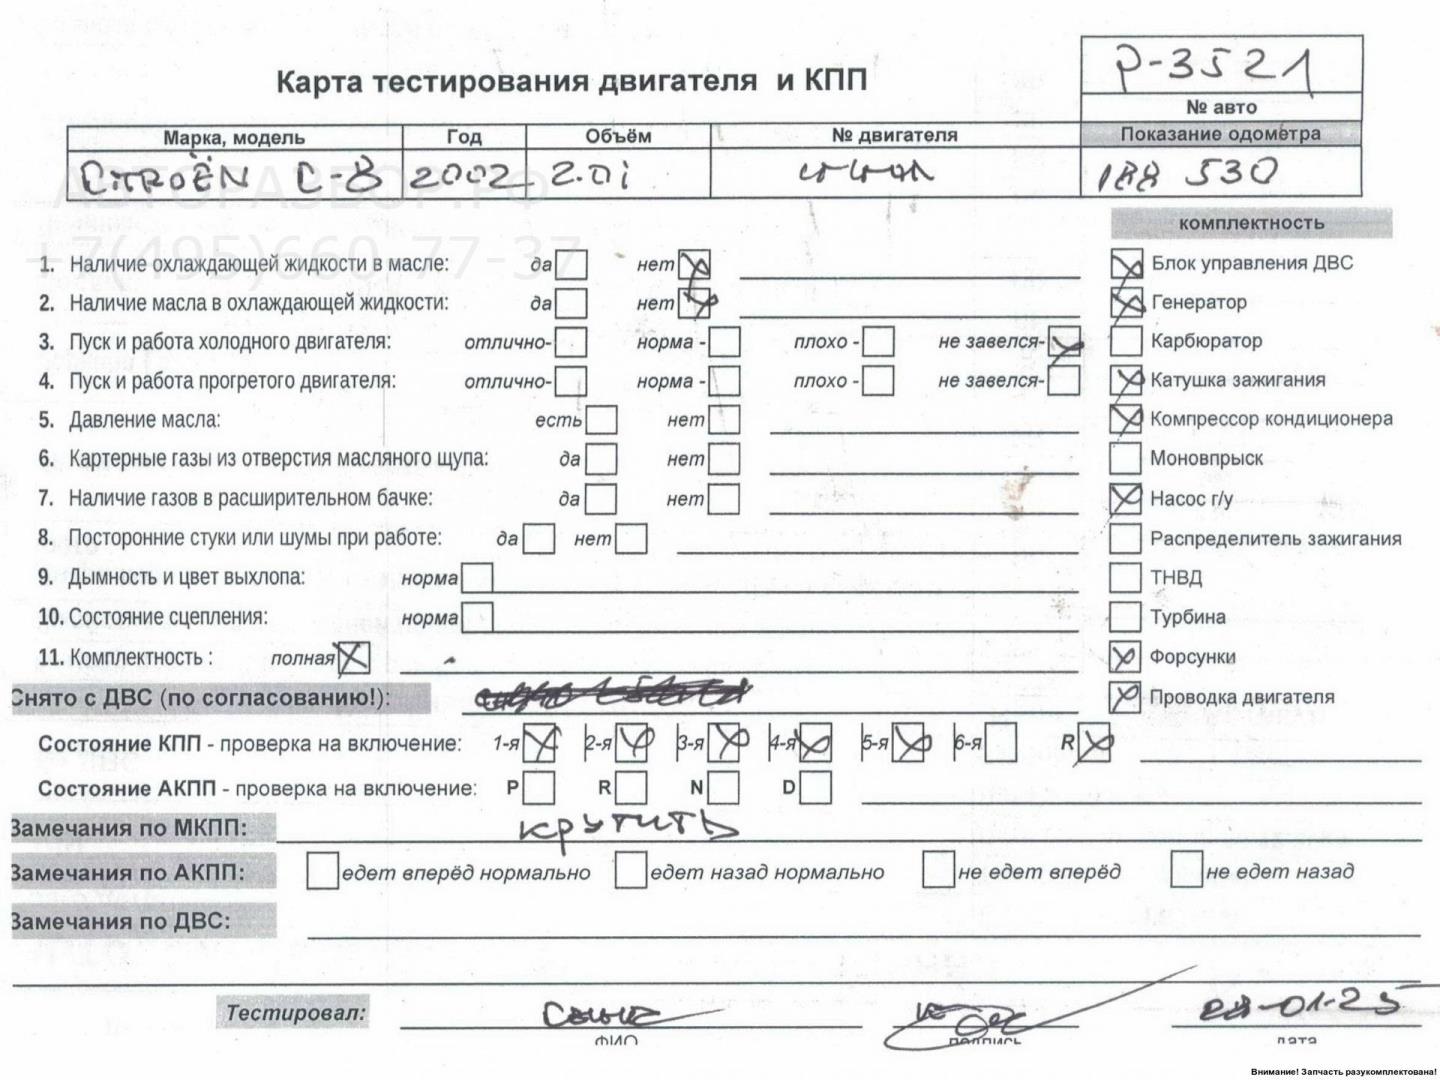 Р-3521
Карта тестирования двигателя и КПП
№ авто
Марка, модель Год Объём № двигателя Показание одометра
CITROËN C-8 2002 2.0i 188 530
АВТОРАЗБОР.РФ
+7(495)660-77-37
комплектность
1. Наличие охлаждающей жидкости в масле: да нет Блок управления ДВС
2. Наличие масла в охлаждающей жидкости: да нет Генератор
3. Пуск и работа холодного двигателя: отлично- норма - плохо - не завелся- Карбюратор
4. Пуск и работа прогретого двигателя: отлично- норма - плохо - не завелся- Катушка зажигания
5. Давление масла: есть нет Компрессор кондиционера
6. Картерные газы из отверстия масляного щупа: да нет Моновпрыск
7. Наличие газов в расширительном бачке: да нет Насос г/у
8. Посторонние стуки или шумы при работе: да нет Распределитель зажигания
9. Дымность и цвет выхлопа: норма ТНВД
10. Состояние сцепления: норма Турбина
11. Комплектность : полная Форсунки
Снято с ДВС (по согласованию!): Проводка двигателя
Состояние КПП - проверка на включение: 1-я 2-я 3-я 4-я 5-я 6-я R
Состояние АКПП - проверка на включение: P R N D
Замечания по МКПП: крутить
Замечания по АКПП: едет вперёд нормально едет назад нормально не едет вперёд не едет назад
Замечания по ДВС:
Тестировал: 28-01-25
ФИО подпись дата
Внимание! Запчасть разукомплектована!